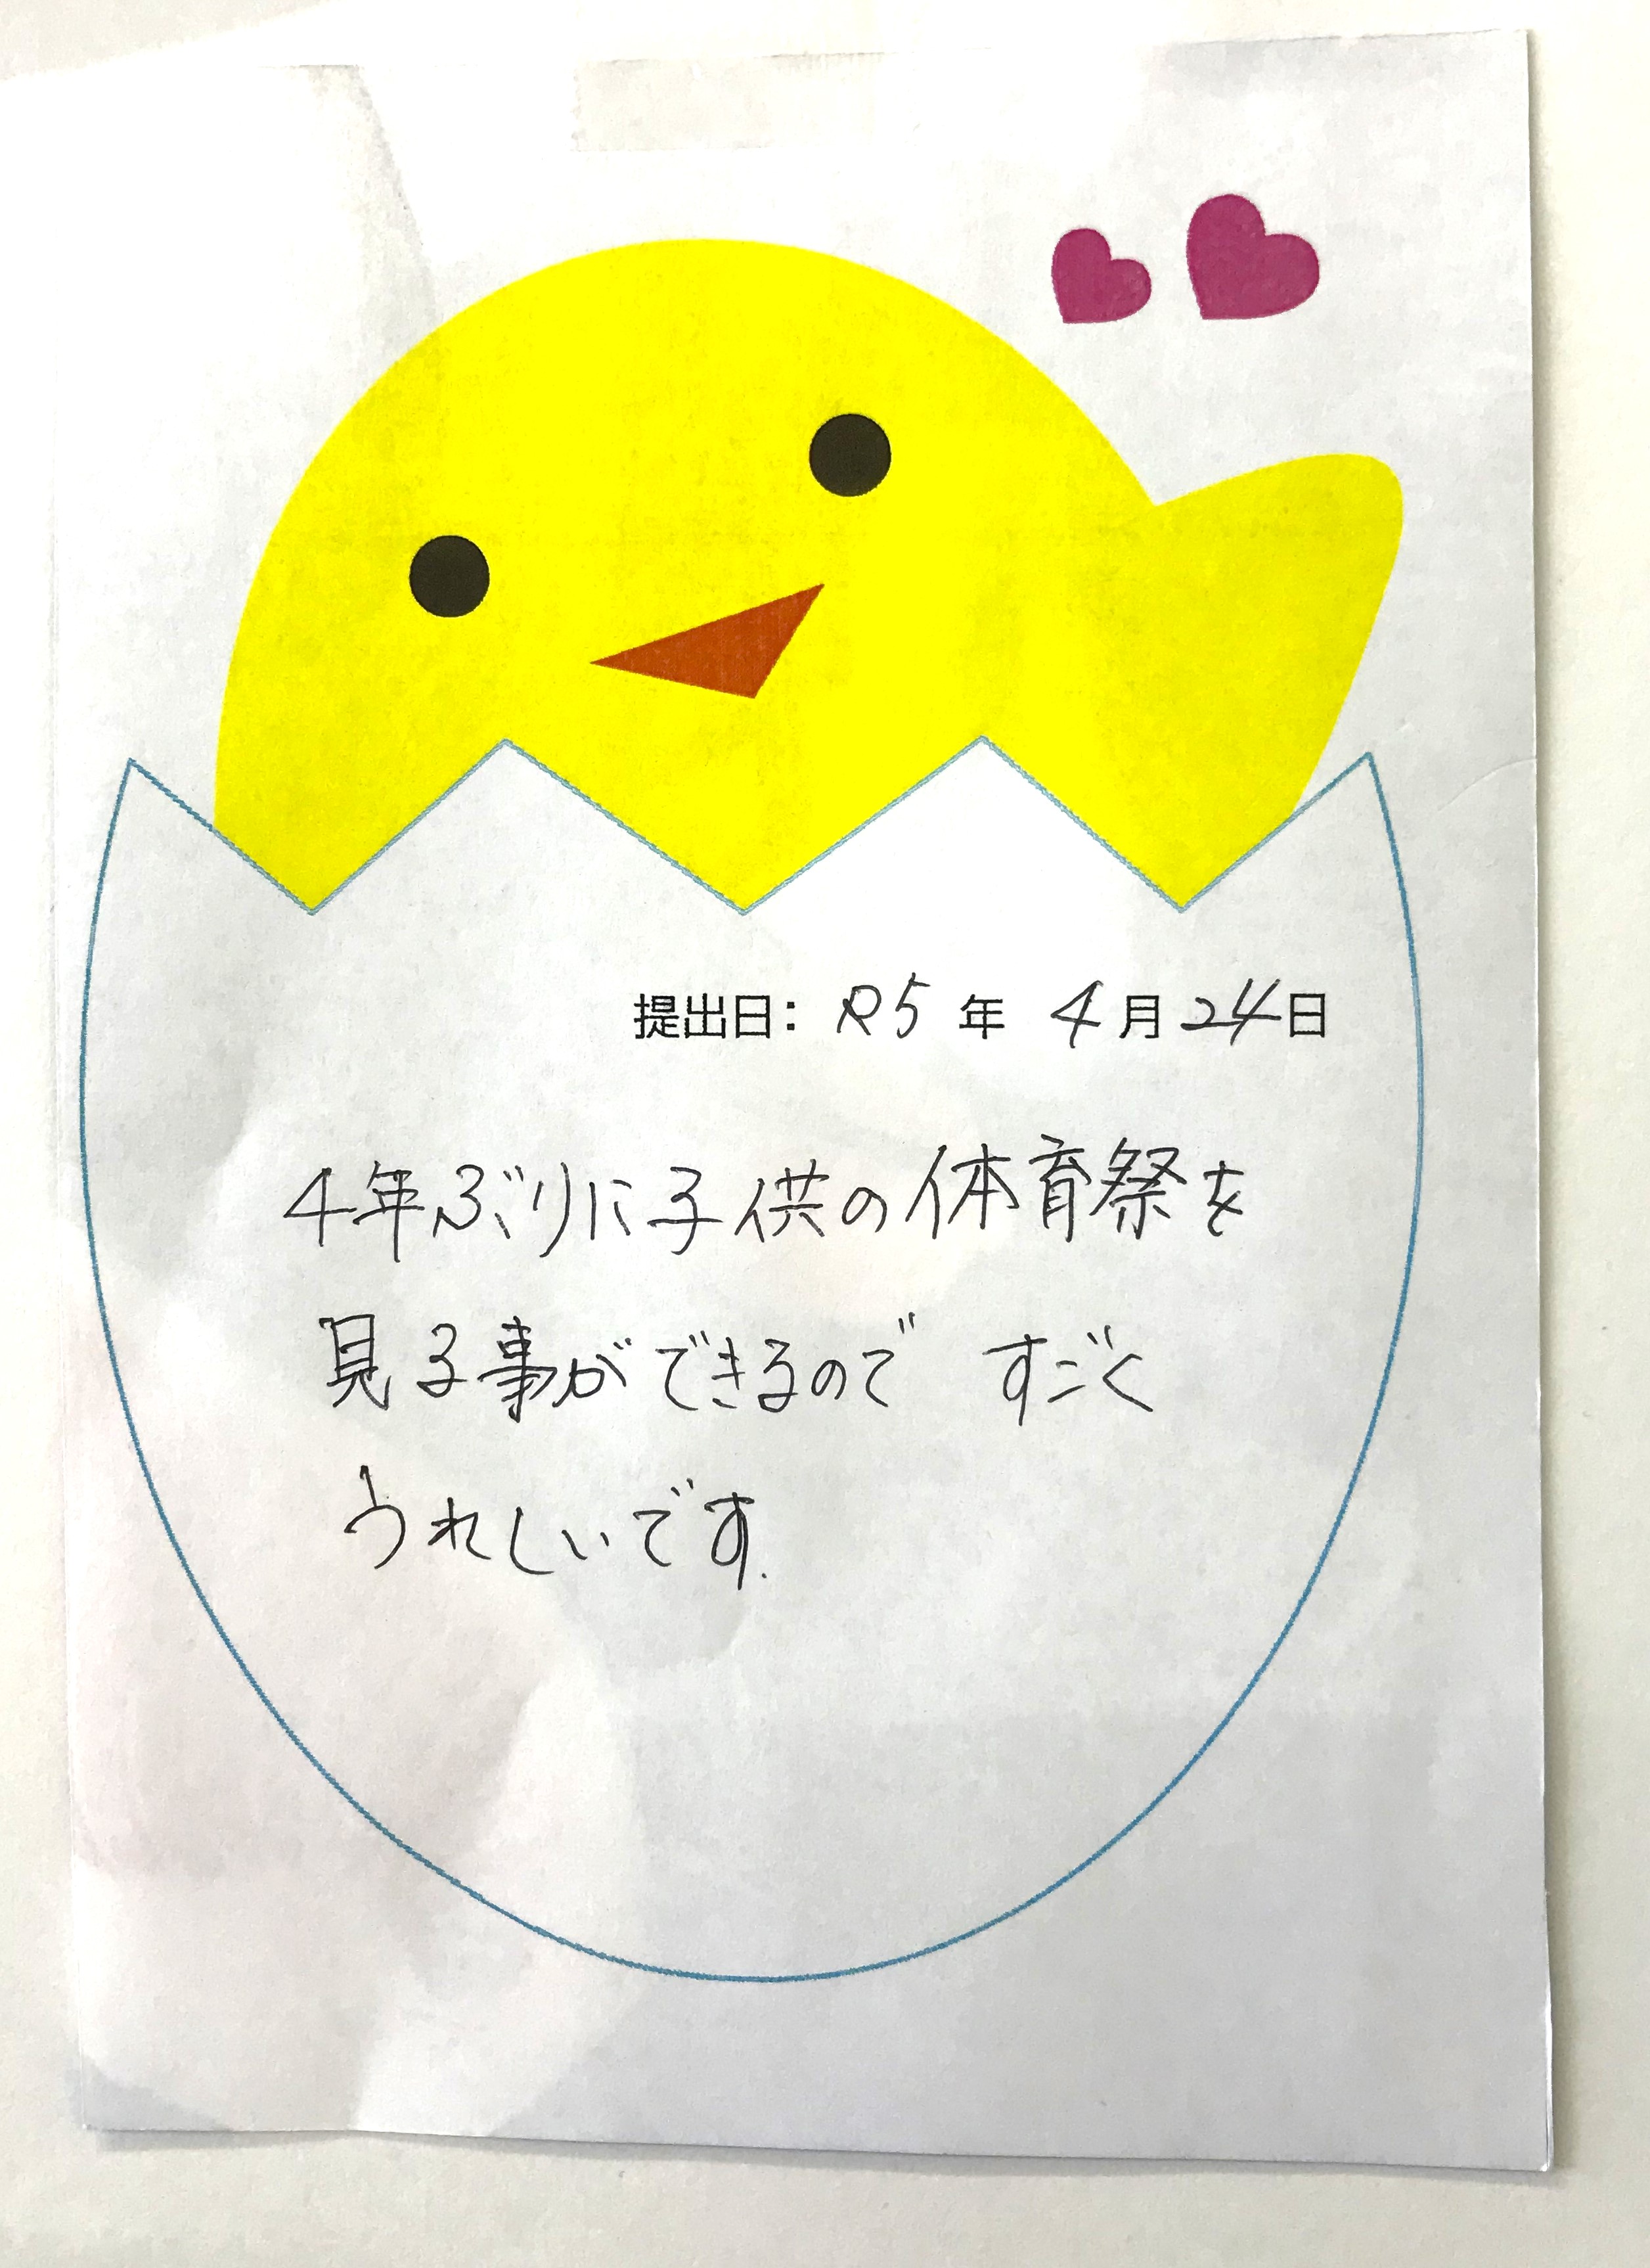 提出日: R5 年 4 月 24 日
4年ぶりに子供の体育祭を
見る事ができるので すごく
うれしいです.